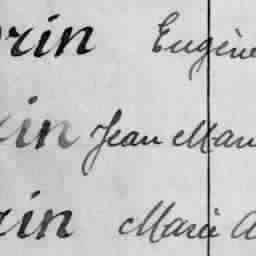 rin Eugène
rin Jean Mari
rin Marie A